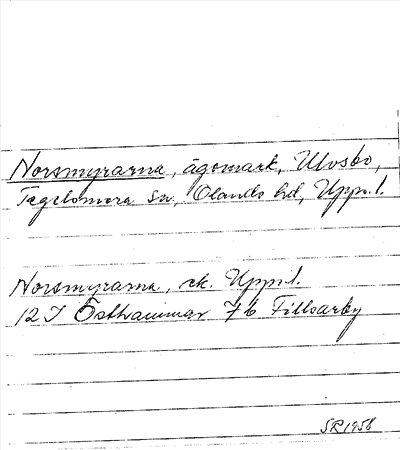 Norsmyrarna, ägomark, Ulvsbo,
Tegelsmora sn, Olands hd, Uppl.
Norsmyrarna, ek. Uppl.
12 I Östhammar 7b Fillsarby
SR 1958